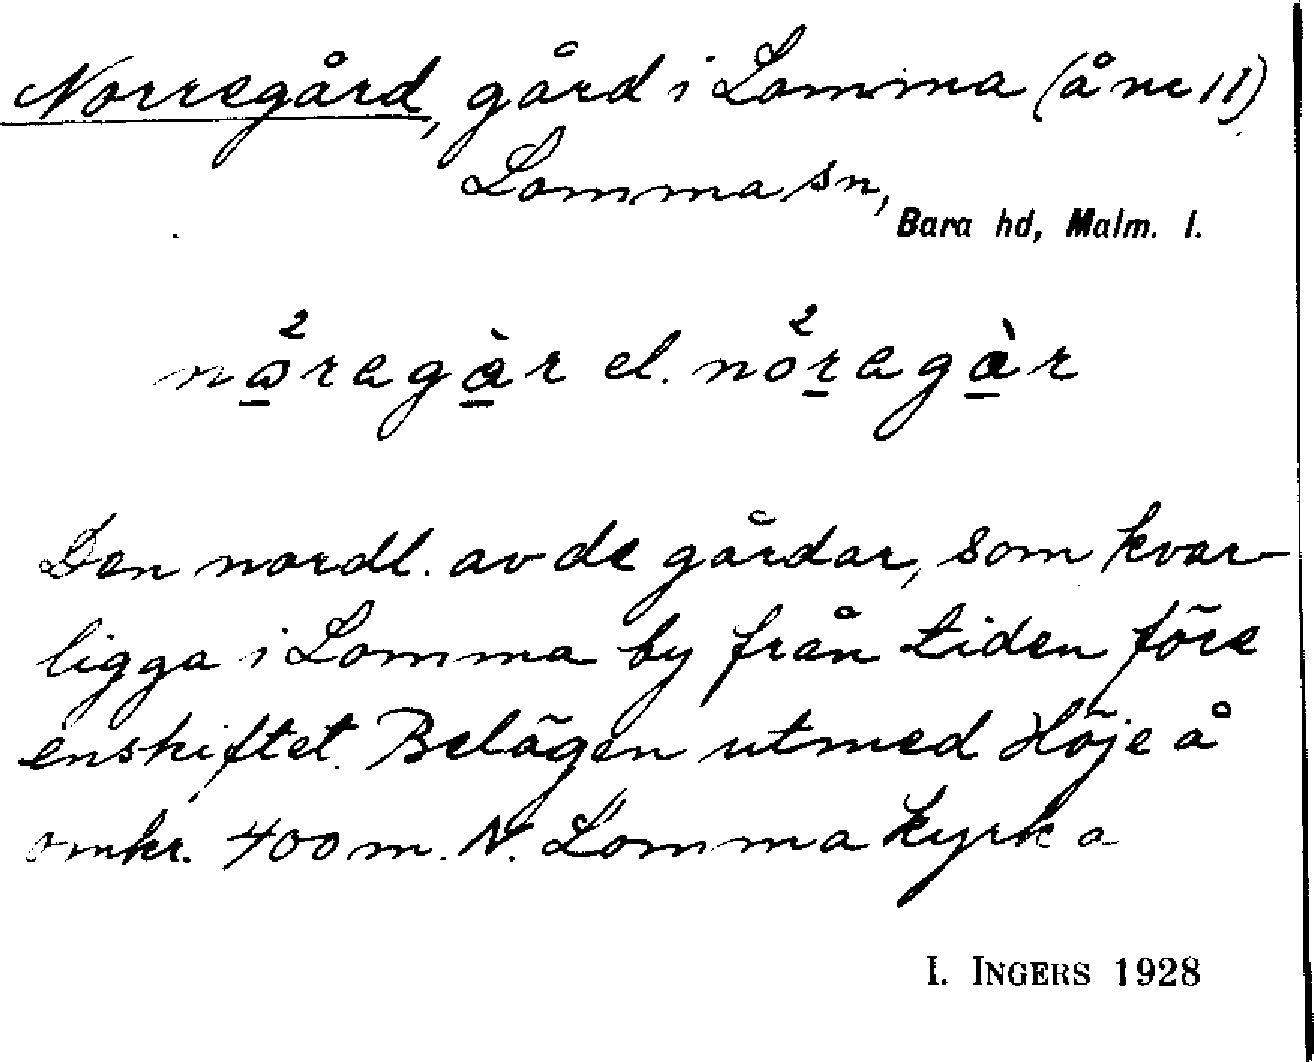 Norregård, gård i Lomma (å nr 11)
Lomma sn,
Bara hd, Malm. l.
nåragàr el. nóragàr
Den nordl. av de gårdar, som kvar-
ligga i Lomma by från tiden före
enskiftet. Belägen utmed Höje å
omkr. 400 m. N. Lomma kyrka
I. INGERS 1928